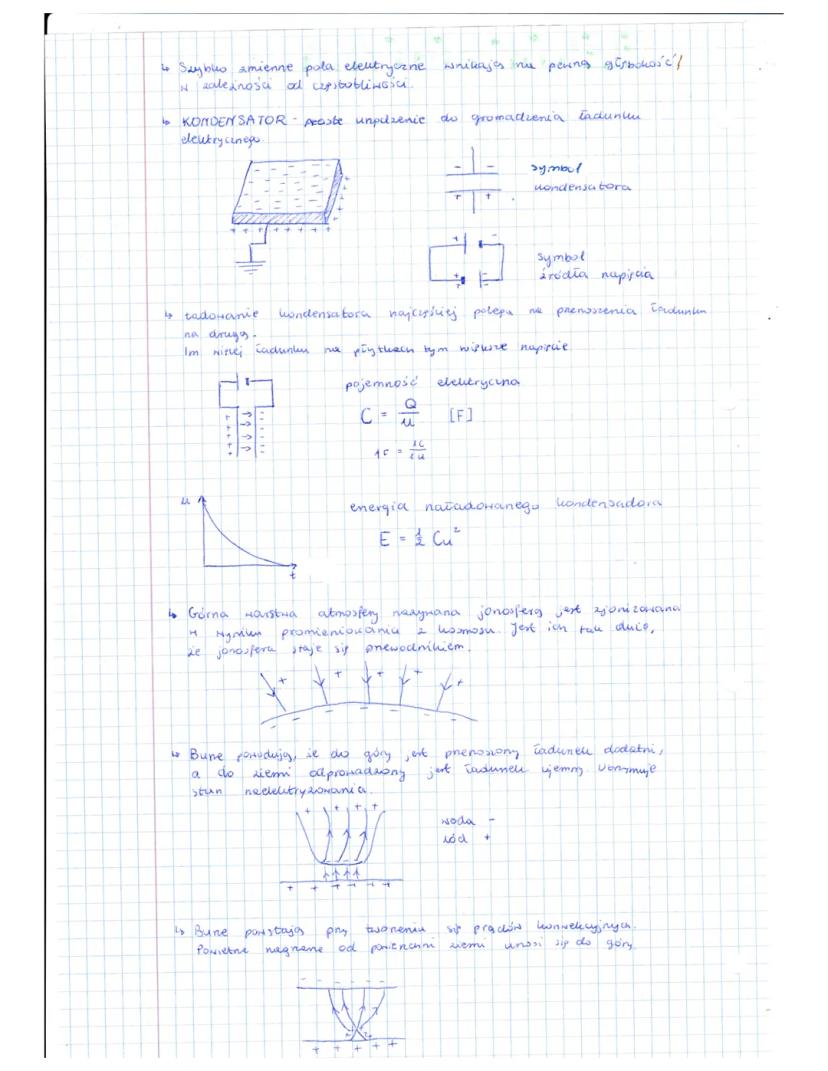 ↳ Szybko zmienne pola elektryczne wnikają na pewną głębokość
w zależności od częstotliwości.
↳ KONDENSATOR - proste urządzenie do gromadzenia ładunku
elektrycznego
symbol
kondensatora
symbol
źródła napięcia
↳ Ładowanie kondensatora najczęściej polega na przenoszenia ładunku
na drugą.
Im więcej ładunku na płytkach tym większe napięcie
pojemność elektryczna
C = Q/u [F]
1F = 1C/1u
u
t
energia naładowanego kondensadora
E = 1/2 Cu²
↳ Górna warstwa atmosfery nazywana jonosferą jest zjonizowana
w wyniku promieniowania z kosmosu. Jest ich tak dużo,
że jonosfera staje się przewodnikiem.
↳ Burze powodują, że do góry jest przenoszony ładunek dodatni,
a do ziemi odprowadzony jest ładunek ujemny. Utrzymuje
stan naelektryzowania.
woda -
lód +
↳ Burze powstają przy tworzeniu się prądów konwekcyjnych.
Powietrze nagrzane od powierzchni ziemi unosi się do góry